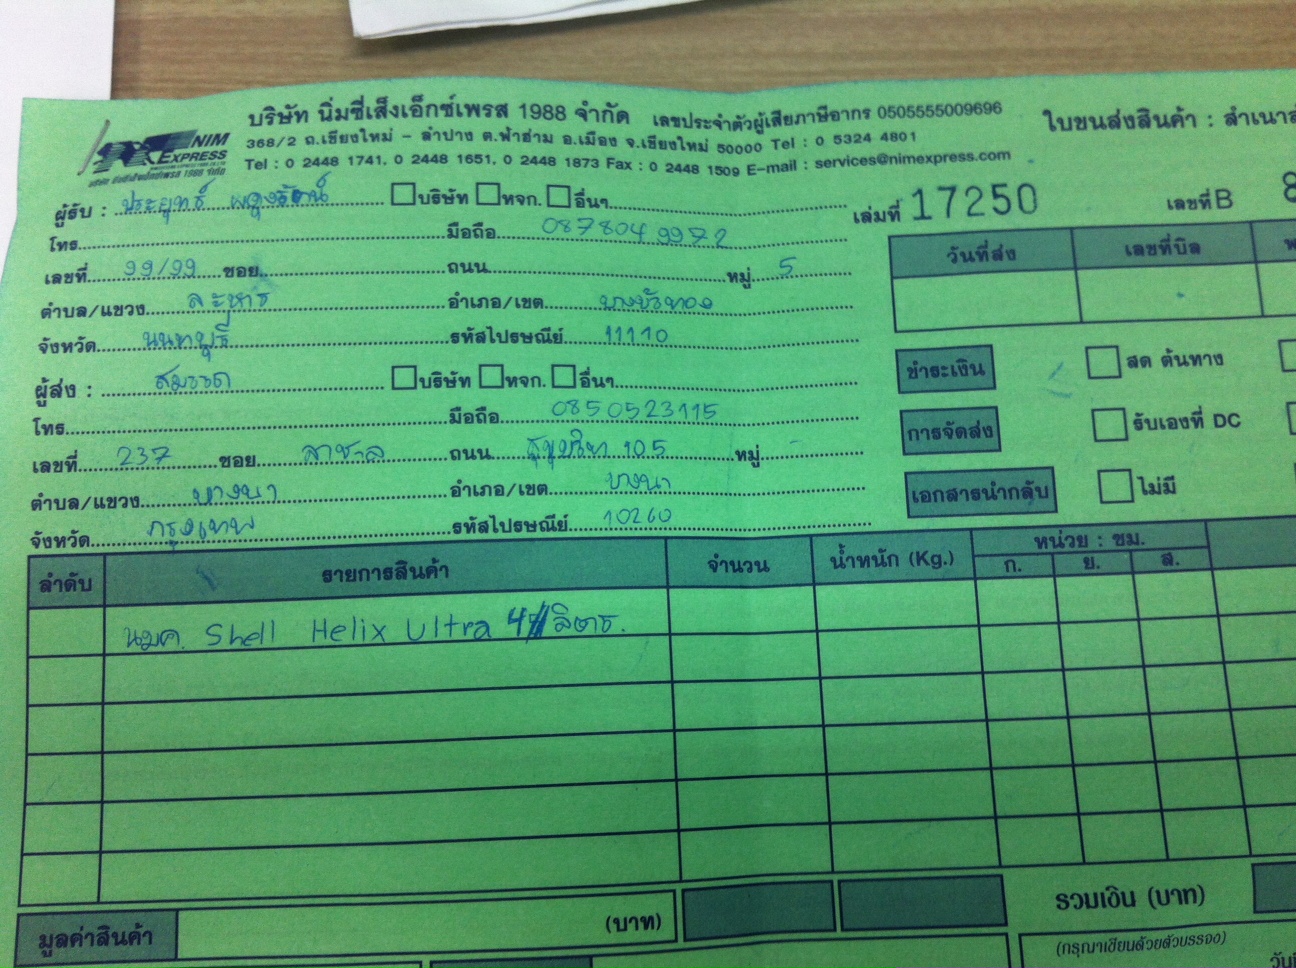 บริษัท นิ่มซี่เส็งเอ็กซ์เพรส 1988 จำกัด เลขประจำตัวผู้เสียภาษีอากร 0505555009696
ใบขนส่งสินค้า : สำเนา
NIM EXPRESS
368/2 ถ.เชียงใหม่ - ลำปาง ต.ฟ้าฮ่าม อ.เมือง จ.เชียงใหม่ 50000 Tel : 0 5324 4801
บริษัท นิ่มซี่เส็งเอ็กซ์เพรส 1988 จำกัด
Tel : 0 2448 1741, 0 2448 1651, 0 2448 1873 Fax : 0 2448 1509 E-mail : services@nimexpress.com
ผู้รับ : ประยุทธ์ บริษัท หจก. อื่นๆ
เล่มที่ 17250 เลขที่ B 8
โทร. มือถือ 0878049972
เลขที่ 99/99 ซอย ถนน หมู่ 5
ตำบล/แขวง ละหาร อำเภอ/เขต บางบัวทอง
จังหวัด นนทบุรี รหัสไปรษณีย์ 11110
วันที่ส่ง เลขที่บิล
ผู้ส่ง : สมรรถ บริษัท หจก. อื่นๆ
โทร. มือถือ 0850523115
เลขที่ 237 ซอย ลาซาล ถนน สุขุมวิท 105 หมู่ -
ตำบล/แขวง บางนา อำเภอ/เขต บางนา
จังหวัด กรุงเทพ รหัสไปรษณีย์ 10260
ชำระเงิน สด ต้นทาง
การจัดส่ง รับเองที่ DC
เอกสารนำกลับ ไม่มี
ลำดับ รายการสินค้า จำนวน น้ำหนัก (Kg.) หน่วย : ซม.
ก. ย. ส.
นมค. Shell Helix Ultra 4 ลิตร.
มูลค่าสินค้า (บาท) รวมเงิน (บาท)
(กรุณาเขียนด้วยตัวบรรจง)